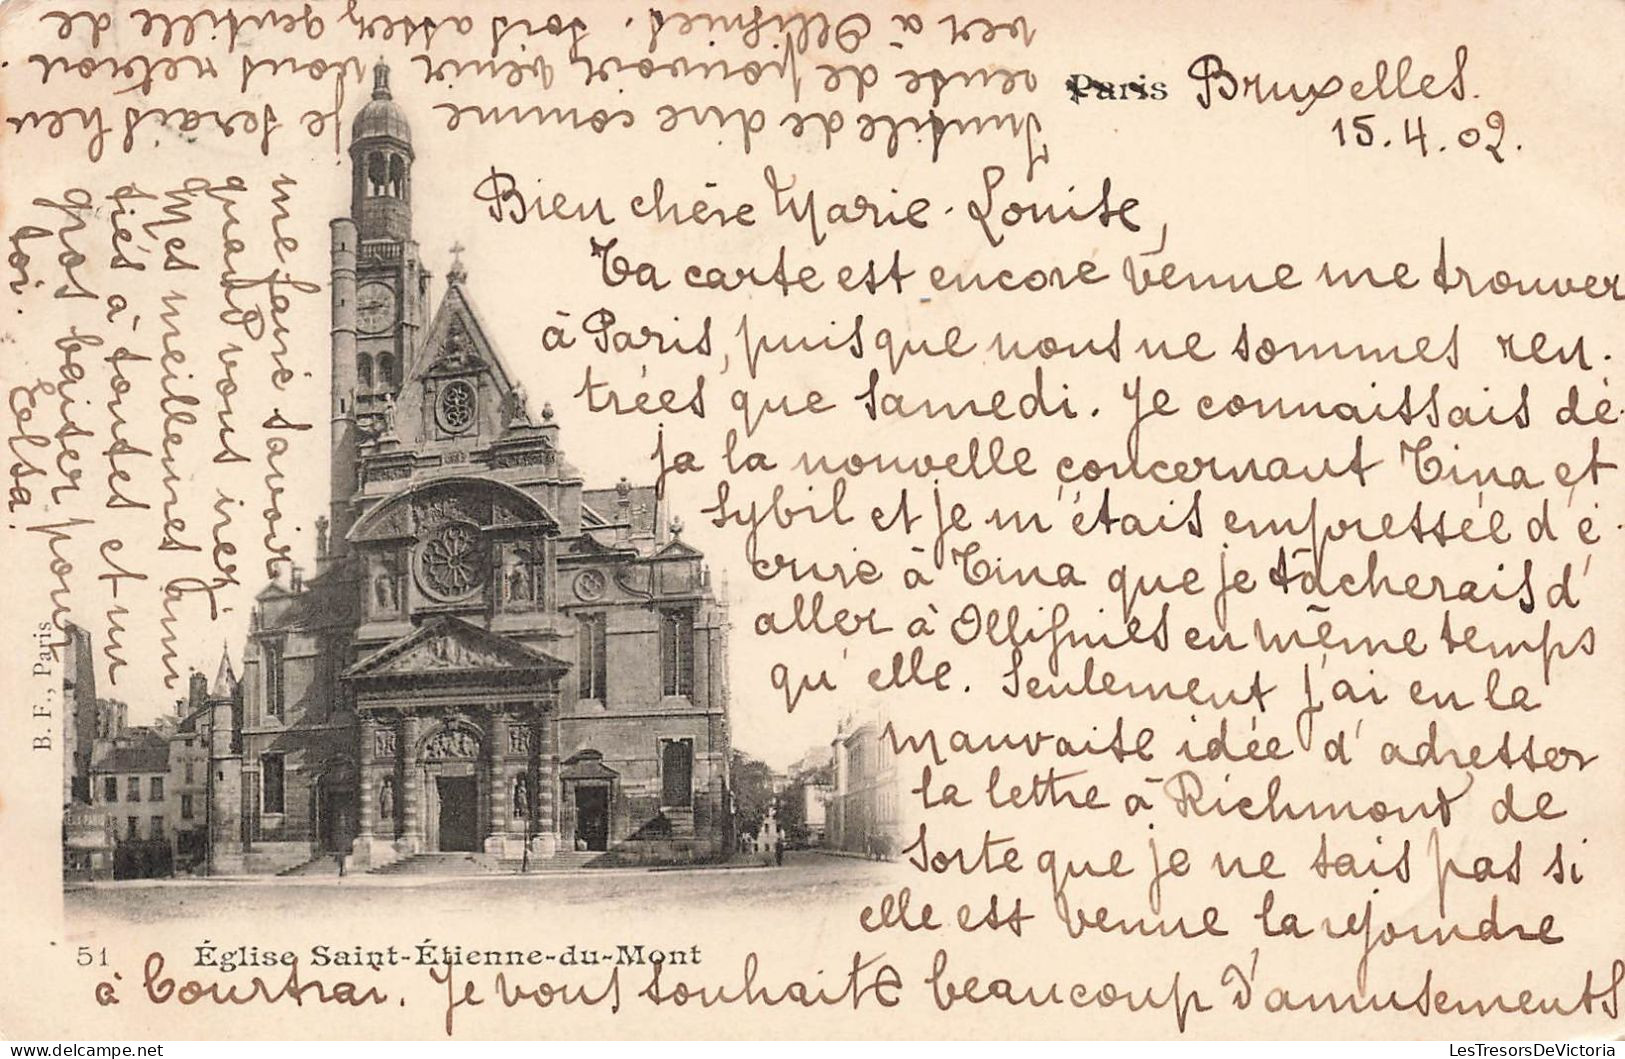 Paris Bruxelles.
15.4.02.
Bien chère Marie-Louise,
Ta carte est encore venue me trouver
à Paris, puisque nous ne sommes ren-
trées que samedi. Je connaissais dé-
ja la nouvelle concernant Tina et
Sybil et je m'étais empressée d'é-
crire à Tina que je tâcherais d'
aller à Ollignies en même temps
qu'elle. Seulement j'ai eu la
mauvaise idée d'adresser
la lettre à Richmond de
sorte que je ne sais pas si
elle est venue la rejoindre
à Courtrai. Je vous souhaite beaucoup d'amusements
Inutile de dire comme je serais heu
reuse de pouvoir venir vous retrou-
ver à Ollignies. Sois assez gentille de
me faire savoir
quand vous irez.
Mes meilleures ami
tiés à toutes et un
gros baiser pour
toi. Elsa.
B. F., Paris
51 Église Saint-Étienne-du-Mont
www.delcampe.net
LesTresorsDeVictoria